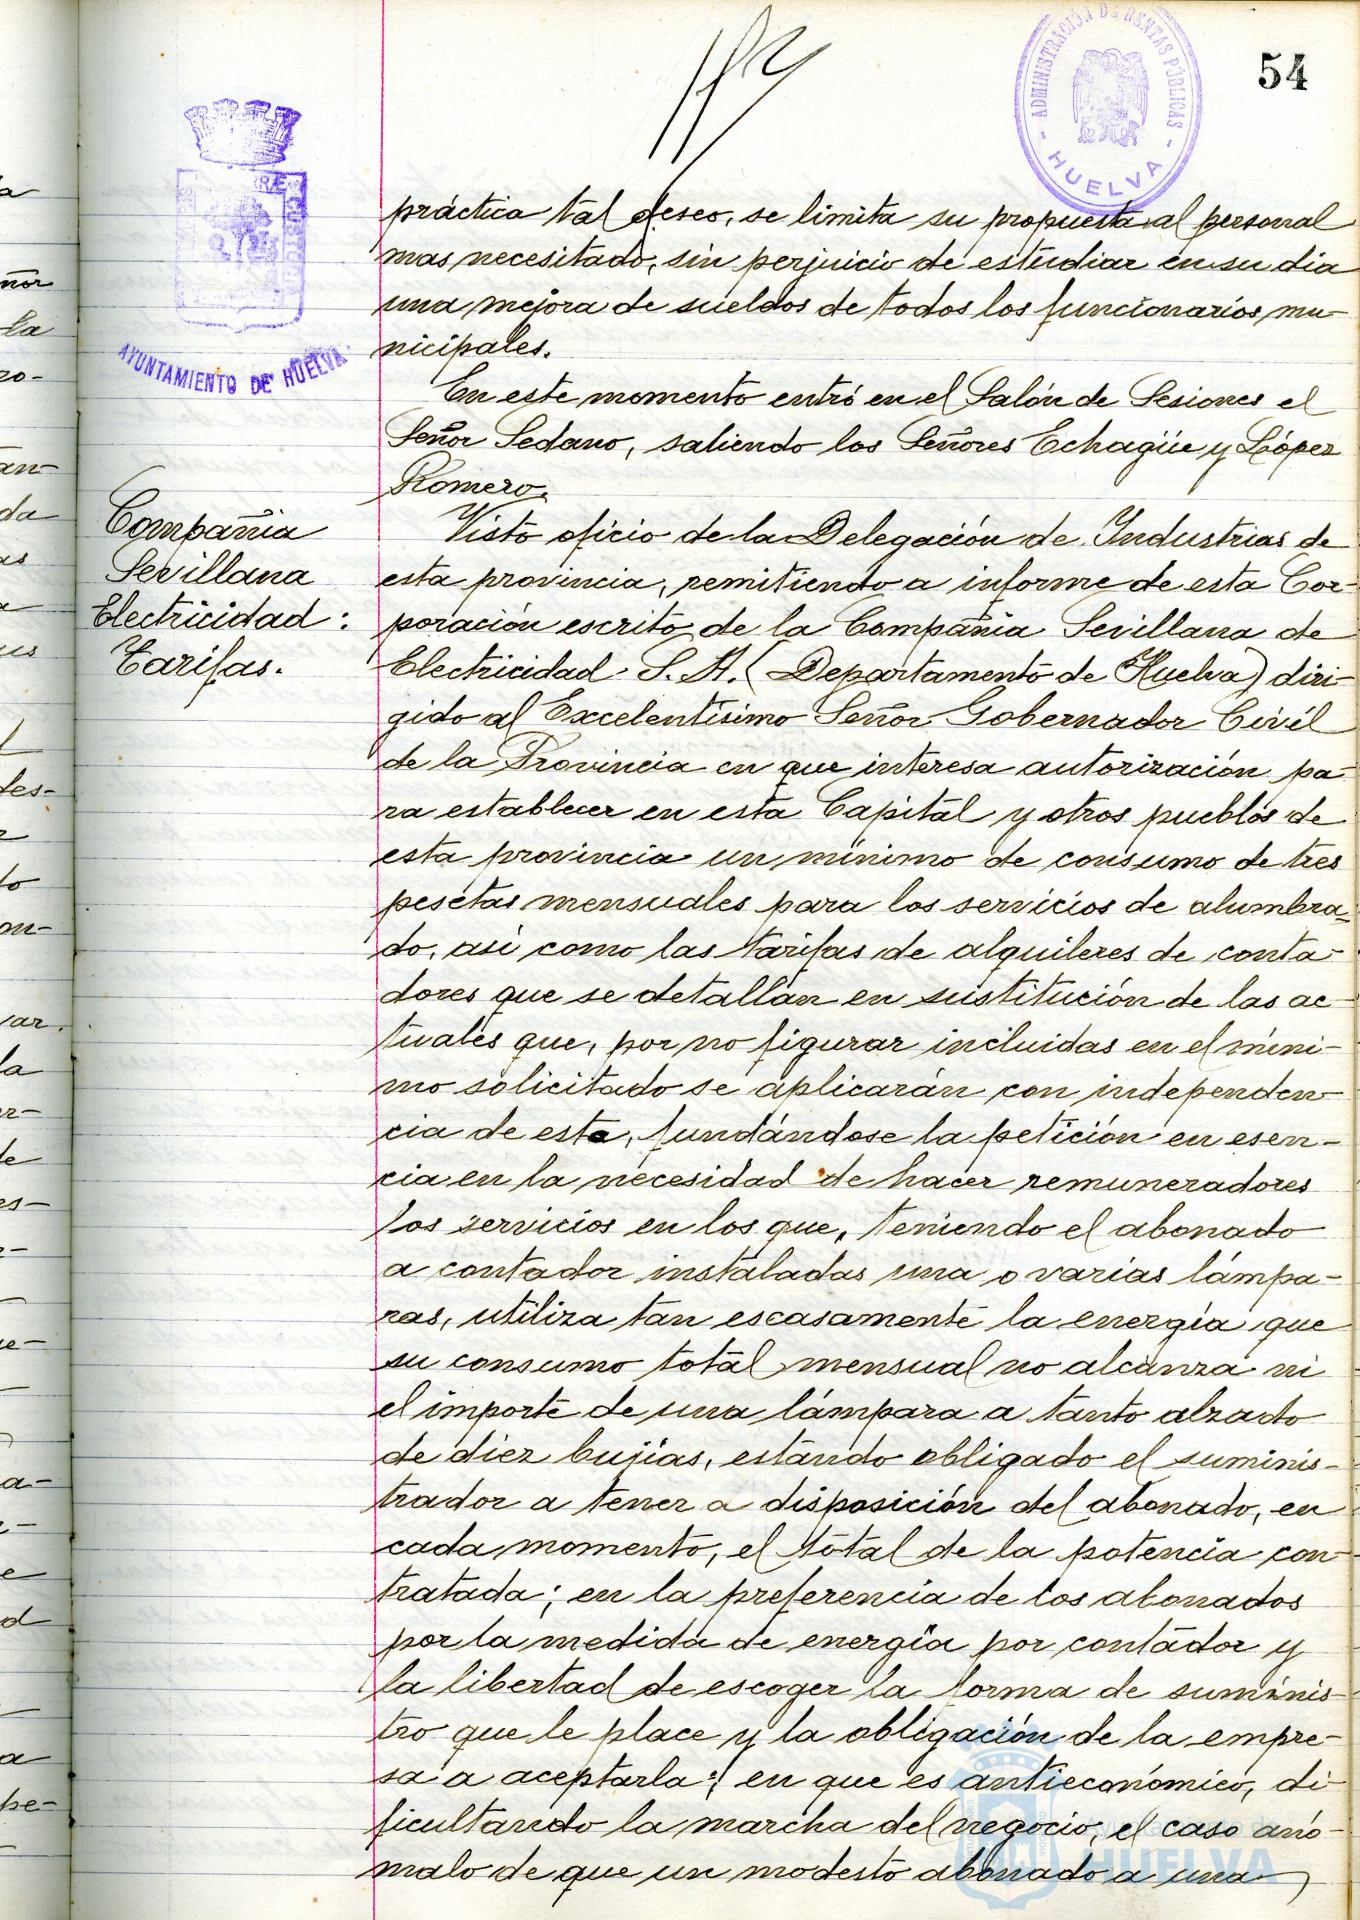 54
ADMINISTRACIÓN DE RENTAS PÚBLICAS
- HUELVA -
AYUNTAMIENTO DE HUELVA
práctica tal deseo, se limita su propuesta al personal
mas necesitado, sin perjuicio de estudiar en su dia
una mejora de sueldos de todos los funcionarios mu-
nicipales.
En este momento entró en el Salón de Sesiones el
Señor Sedano, saliendo los Señores Echagüe y López
Romero.
Compañia
Sevillana
Electricidad:
Tarifas.
Visto oficio de la Delegación de Industrias de
esta provincia, remitiendo a informe de esta Cor-
poración escrito de la Compañia Sevillana de
Electricidad S. A. (Departamento de Huelva) diri-
gido al Excelentísimo Señor Gobernador Civil
de la Provincia en que interesa autorización pa-
ra establecer en esta Capital y otros pueblos de
esta provincia un mínimo de consumo de tres
pesetas mensuales para los servicios de alumbra-
do, asi como las tarifas de alquileres de conta-
dores que se detallan en sustitución de las ac-
tuales que, por no figurar incluidas en el míni-
mo solicitado se aplicarán con independen-
cia de esta, fundándose la petición en esen-
cia en la necesidad de hacer remuneradores
los servicios en los que, teniendo el abonado
a contador instaladas una o varias lámpa-
ras, utiliza tan escasamente la energía que
su consumo total mensual no alcanza ni
el importe de una lámpara a tanto alzado
de diez bujías, estando obligado el suminis-
trador a tener a disposición del abonado, en
cada momento, el total de la potencia con-
tratada; en la preferencia de los abonados
por la medida de energía por contador y
la libertad de escoger la forma de suminis-
tro que le place y la obligación de la empre-
sa a aceptarla; en que es antieconómico, di-
ficultando la marcha del negocio, el caso anó-
malo de que un modesto abonado a una
HUELVA